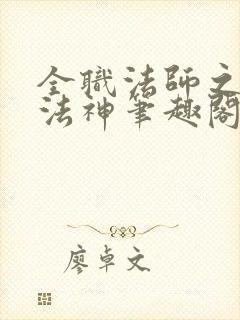 全職法師之
法神筆趣閣
廖卓文